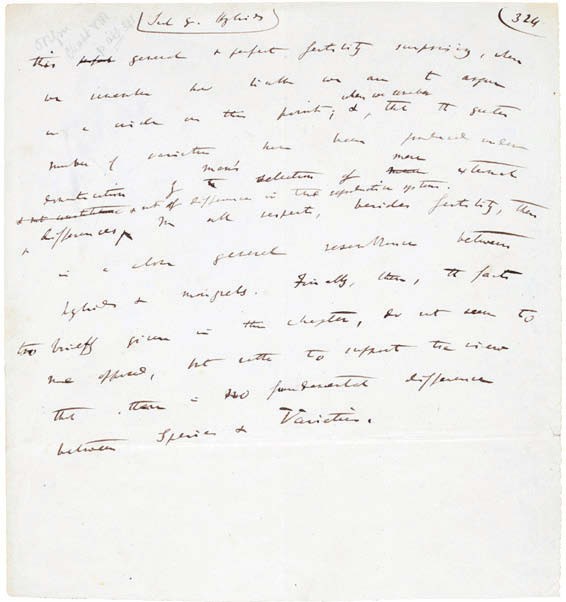 End of Hybrids
324
this general & perfect fertility surprising, when
we remember how liable we are to argue
in a circle on this point; &, when we remember that the greater
number of varieties have been produced under
domestication by man's selection of mere external
& not of differences in the reproductive system.
differences, In all respects, besides fertility, there
is a close general resemblance between
hybrids & mongrels. Finally, then, the facts
too briefly given in this chapter, do not seem to
me opposed, but rather to support the view
that there is no fundamental difference
between Species & Varieties.